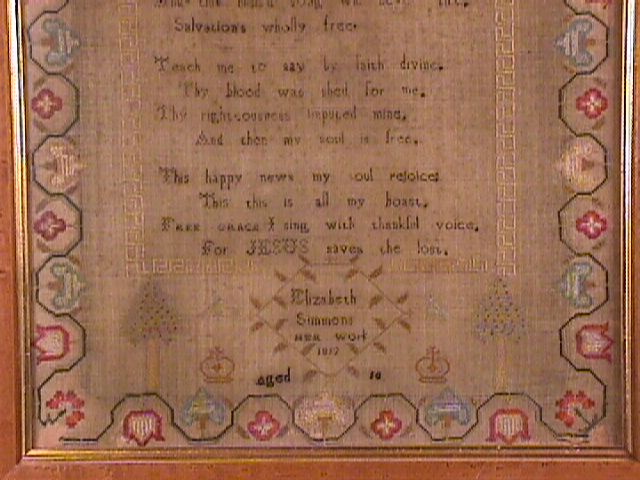 Salvation's wholly free.
Teach me to say by faith divine.
Thy blood was shed for me.
Thy righteousness imputed mine.
And then my soul is free.
This happy news my soul rejoice;
This this is all my boast.
FREE GRACE I sing with thankful voice.
For JESUS saves the lost.
Elizabeth
Simmons
HER work
aged 10